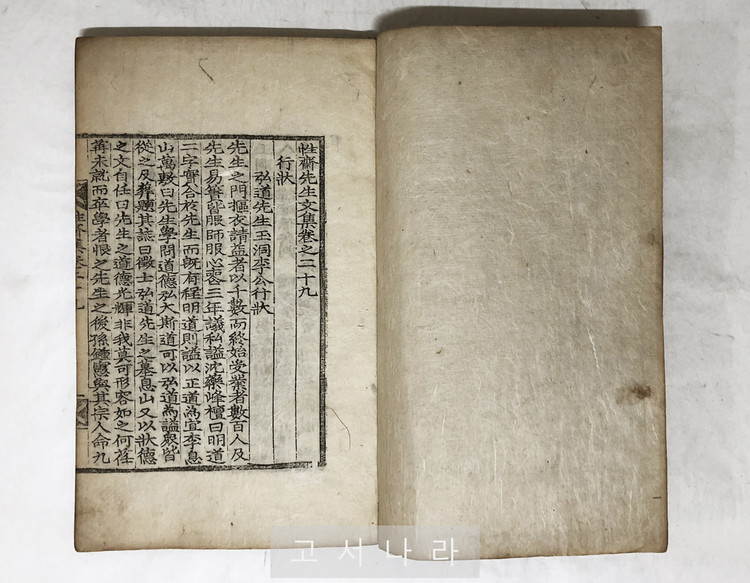 性齋先生文集卷之二十九
行狀
弘道先生玉洞李公行狀
先生之門摳衣請益者以千數而終始受業者數百人及
先生易簀皆服師服心喪三年議私謚沈藥峰檀曰明道
二字實合於先生而旣有程明道則謚以正道為宜李息
山萬敷曰先生學問道德弘大斯道可以弘道為謚衆皆
從之及葬題其誌曰徵士弘道先生之墓息山又以狀德
之文自任曰先生之道德光輝非我莫可形容如之何荏
苒未就而卒學者恨之先生之後孫鍾憲與其宗人命九
고서나라